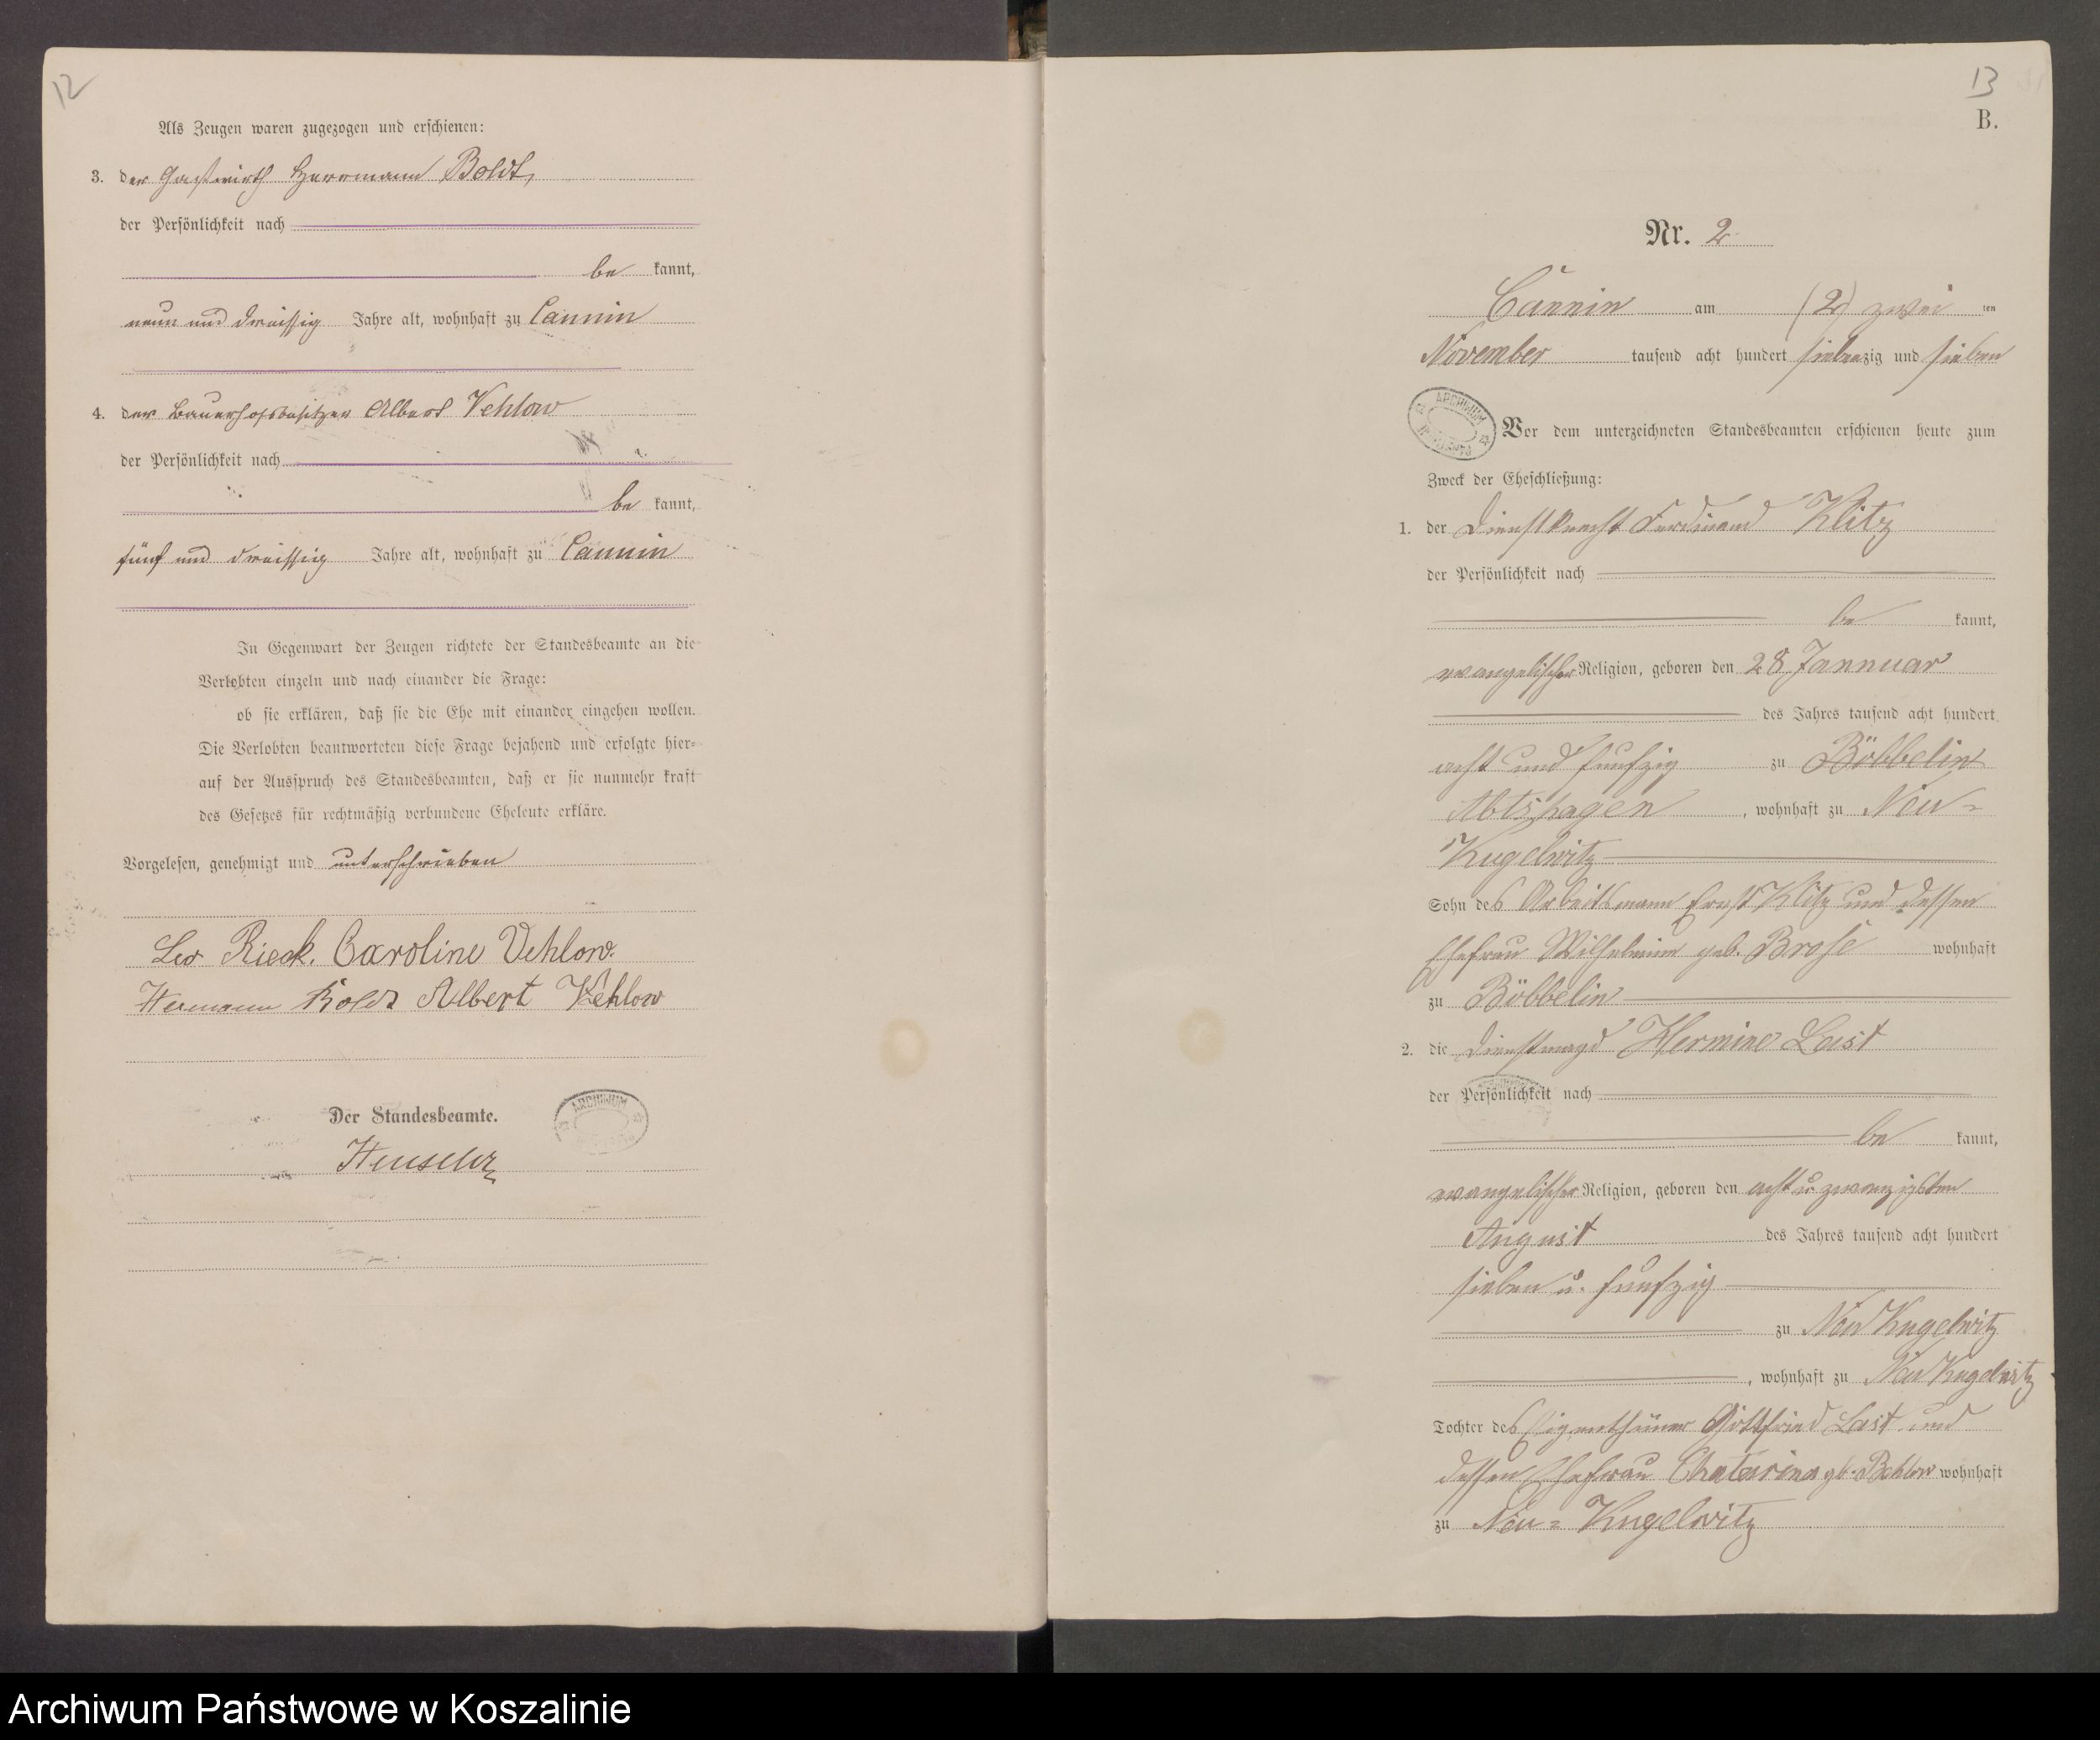 12
Als Zeugen waren zugezogen und erschienen:
3. der Gastwirth Herrmann Boldt,
der Persönlichkeit nach
be kannt,
neun und dreissig Jahre alt, wohnhaft zu Cannin
4. der Bauerhofsbesitzer Albert Vehlow
der Persönlichkeit nach
be kannt,
fünf und dreissig Jahre alt, wohnhaft zu Cannin
In Gegenwart der Zeugen richtete der Standesbeamte an die
Verlobten einzeln und nach einander die Frage:
ob sie erklären, daß sie die Ehe mit einander eingehen wollen.
Die Verlobten beantworteten diese Frage bejahend und erfolgte hier=
auf der Ausspruch des Standesbeamten, daß er sie nunmehr kraft
des Gesetzes für rechtmäßig verbundene Eheleute erkläre.
Vorgelesen, genehmigt und unterschrieben
Leo Rieck. Caroline Vehlow.
Hermann Boldt Albert Vehlow
Der Standesbeamte.
ARCHIWUM
13
B.
Nr. 2
Cannin am (2) zwei ten
November tausend acht hundert siebenzig und sieben
ARCHIWUM
Vor dem unterzeichneten Standesbeamten erschienen heute zum
Zweck der Eheschließung:
1. der Dienstknecht Ferdinand Klitz
der Persönlichkeit nach
be kannt,
evangelischer Religion, geboren den 28 Jannuar
des Jahres tausend acht hundert
acht und funfzig zu Böbbelin
Abtshagen, wohnhaft zu Neu=
Kugelwitz
Sohn des Arbeitsmann Ernst Klitz und dessen
Ehefrau Wilhelmine geb. Brose wohnhaft
zu Böbbelin
2. die Dienstmagd Hermine Last
der Persönlichkeit nach
be kannt,
evangelischer Religion, geboren den acht u zwanzigsten
August des Jahres tausend acht hundert
sieben u. funfzig
zu Neu Kugelwitz
, wohnhaft zu Neu Kugelwitz
Tochter des Eigenthümer Gottfried Last und
dessen Ehefrau Chatarina gb. Behlow wohnhaft
zu Neu= Kugelwitz
Archiwum Państwowe w Koszalinie